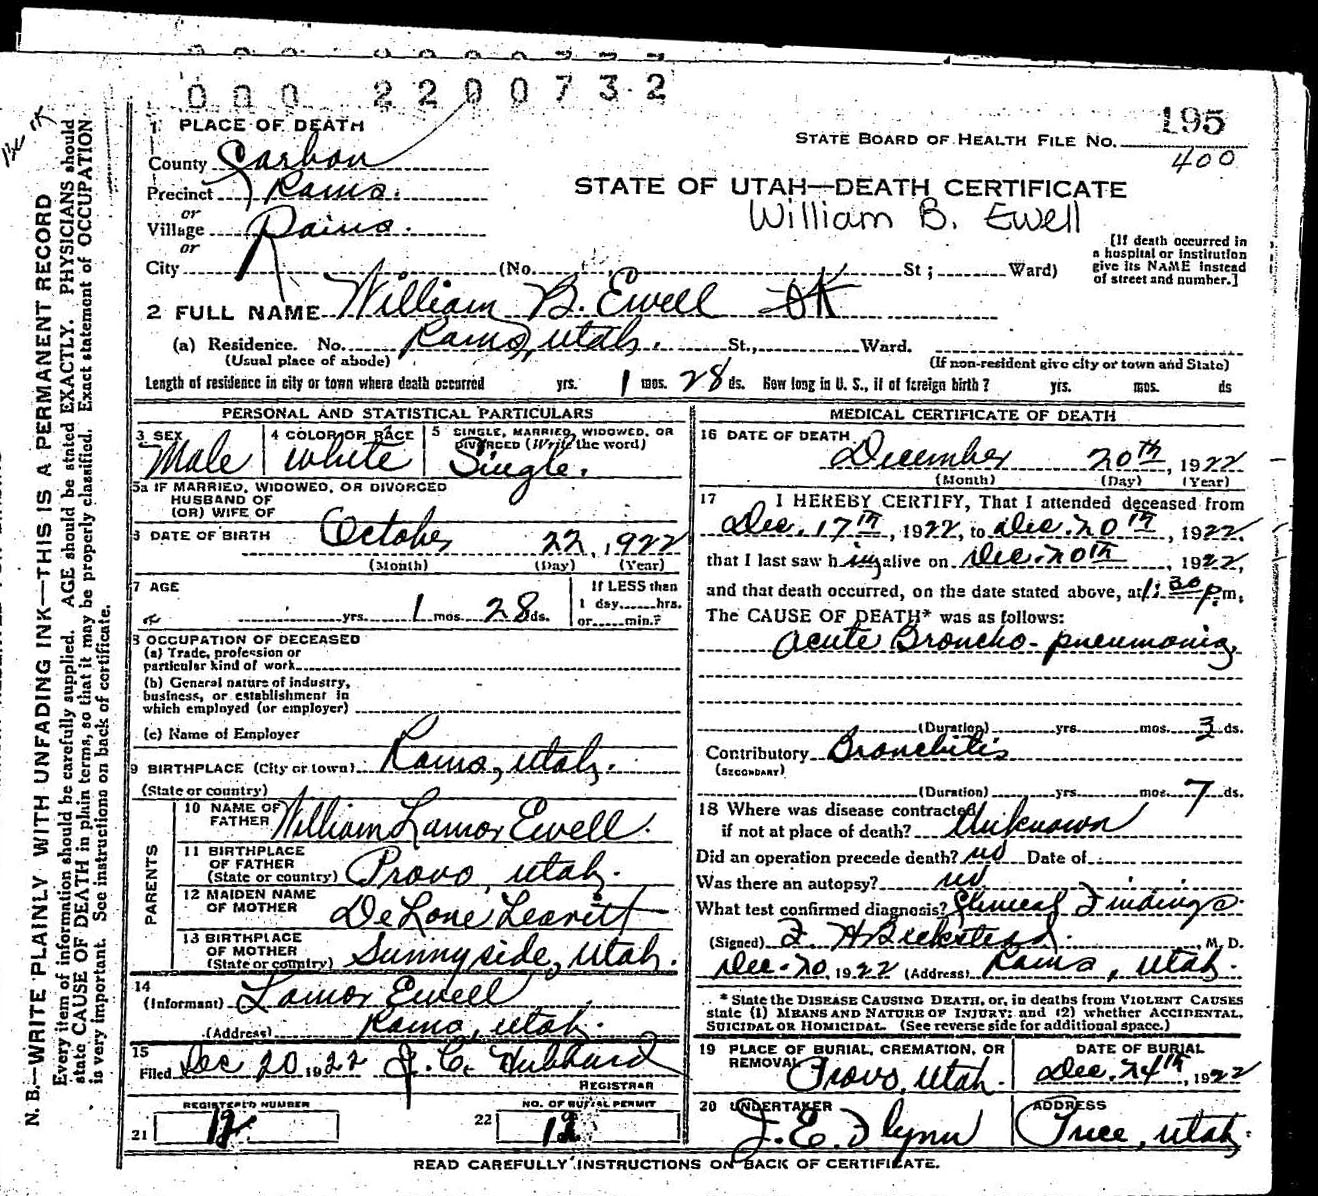 000 2200732
1 PLACE OF DEATH
STATE BOARD OF HEALTH FILE No. 195
400
County Carbon
Precinct Rains.
or
Village Rains.
or
STATE OF UTAH—DEATH CERTIFICATE
William B. Ewell
[If death occurred in
a hospital or institution
give its NAME instead
of street and number.]
City (No. St; Ward)
2 FULL NAME William B. Ewell OK
(a) Residence. No. Rains, Utah. St., Ward.
(Usual place of abode) (If non-resident give city or town and State)
Length of residence in city or town where death occurred yrs. 1 mos. 28 ds. How long in U. S., if of foreign birth? yrs. mos. ds
PERSONAL AND STATISTICAL PARTICULARS
3 SEX
Male
4 COLOR OR RACE
White
5 SINGLE, MARRIED, WIDOWED, OR
DIVORCED (Write the word)
Single.
5a IF MARRIED, WIDOWED, OR DIVORCED
HUSBAND OF
(OR) WIFE OF
6 DATE OF BIRTH October 22, 1922
(Month) (Day) (Year)
7 AGE
yrs. 1 mos. 28 ds.
If LESS then
1 day......hrs.
or......min.?
8 OCCUPATION OF DECEASED
(a) Trade, profession or
particular kind of work
(b) General nature of industry,
business, or establishment in
which employed (or employer)
(c) Name of Employer
9 BIRTHPLACE (City or town) Rains, Utah.
(State or country)
PARENTS
10 NAME OF
FATHER William Lamor Ewell.
11 BIRTHPLACE
OF FATHER
(State or country) Provo, Utah.
12 MAIDEN NAME
OF MOTHER DeLone Leavitt
13 BIRTHPLACE
OF MOTHER
(State or country) Sunnyside, Utah.
14
(Informant) Lamor Ewell
(Address) Rains, Utah.
15
Filed Dec 20, 1922 J. C. Hubbard
REGISTRAR
REGISTERED NUMBER
21 12
NO. OF BURIAL PERMIT
22 12
MEDICAL CERTIFICATE OF DEATH
16 DATE OF DEATH
December 20th, 1922
(Month) (Day) (Year)
17 I HEREBY CERTIFY, That I attended deceased from
Dec. 17th, 1922, to Dec. 20th, 1922.
that I last saw him alive on Dec. 20th, 1922,
and that death occurred, on the date stated above, at 1:30 p.m,
The CAUSE OF DEATH* was as follows:
Acute Broncho-pneumonia.
(Duration) yrs. mos. 3 ds.
Contributory Bronchitis
(SECONDARY)
(Duration) yrs. mos. 7 ds.
18 Where was disease contracted
if not at place of death? Unknown
Did an operation precede death? no Date of
Was there an autopsy? no
What test confirmed diagnosis? Clinical Findings.
(Signed) F. H. Beckstead. M. D.
Dec. 20, 1922 (Address) Rains, Utah.
* State the DISEASE CAUSING DEATH, or, in deaths from VIOLENT CAUSES
state (1) MEANS AND NATURE OF INJURY; and (2) whether ACCIDENTAL,
SUICIDAL OR HOMICIDAL. (See reverse side for additional space.)
19 PLACE OF BURIAL, CREMATION, OR
REMOVAL Provo, Utah.
DATE OF BURIAL
Dec. 24th, 1922
20 UNDERTAKER
J. E. Flynn
ADDRESS
Price, Utah.
READ CAREFULLY INSTRUCTIONS ON BACK OF CERTIFICATE.
N. B.—WRITE PLAINLY WITH UNFADING INK—THIS IS A PERMANENT RECORD
Every item of information should be carefully supplied. AGE should be stated EXACTLY. PHYSICIANS should
state CAUSE OF DEATH in plain terms, so that it may be properly classified. Exact statement of OCCUPATION
is very important. See instructions on back of certificate.